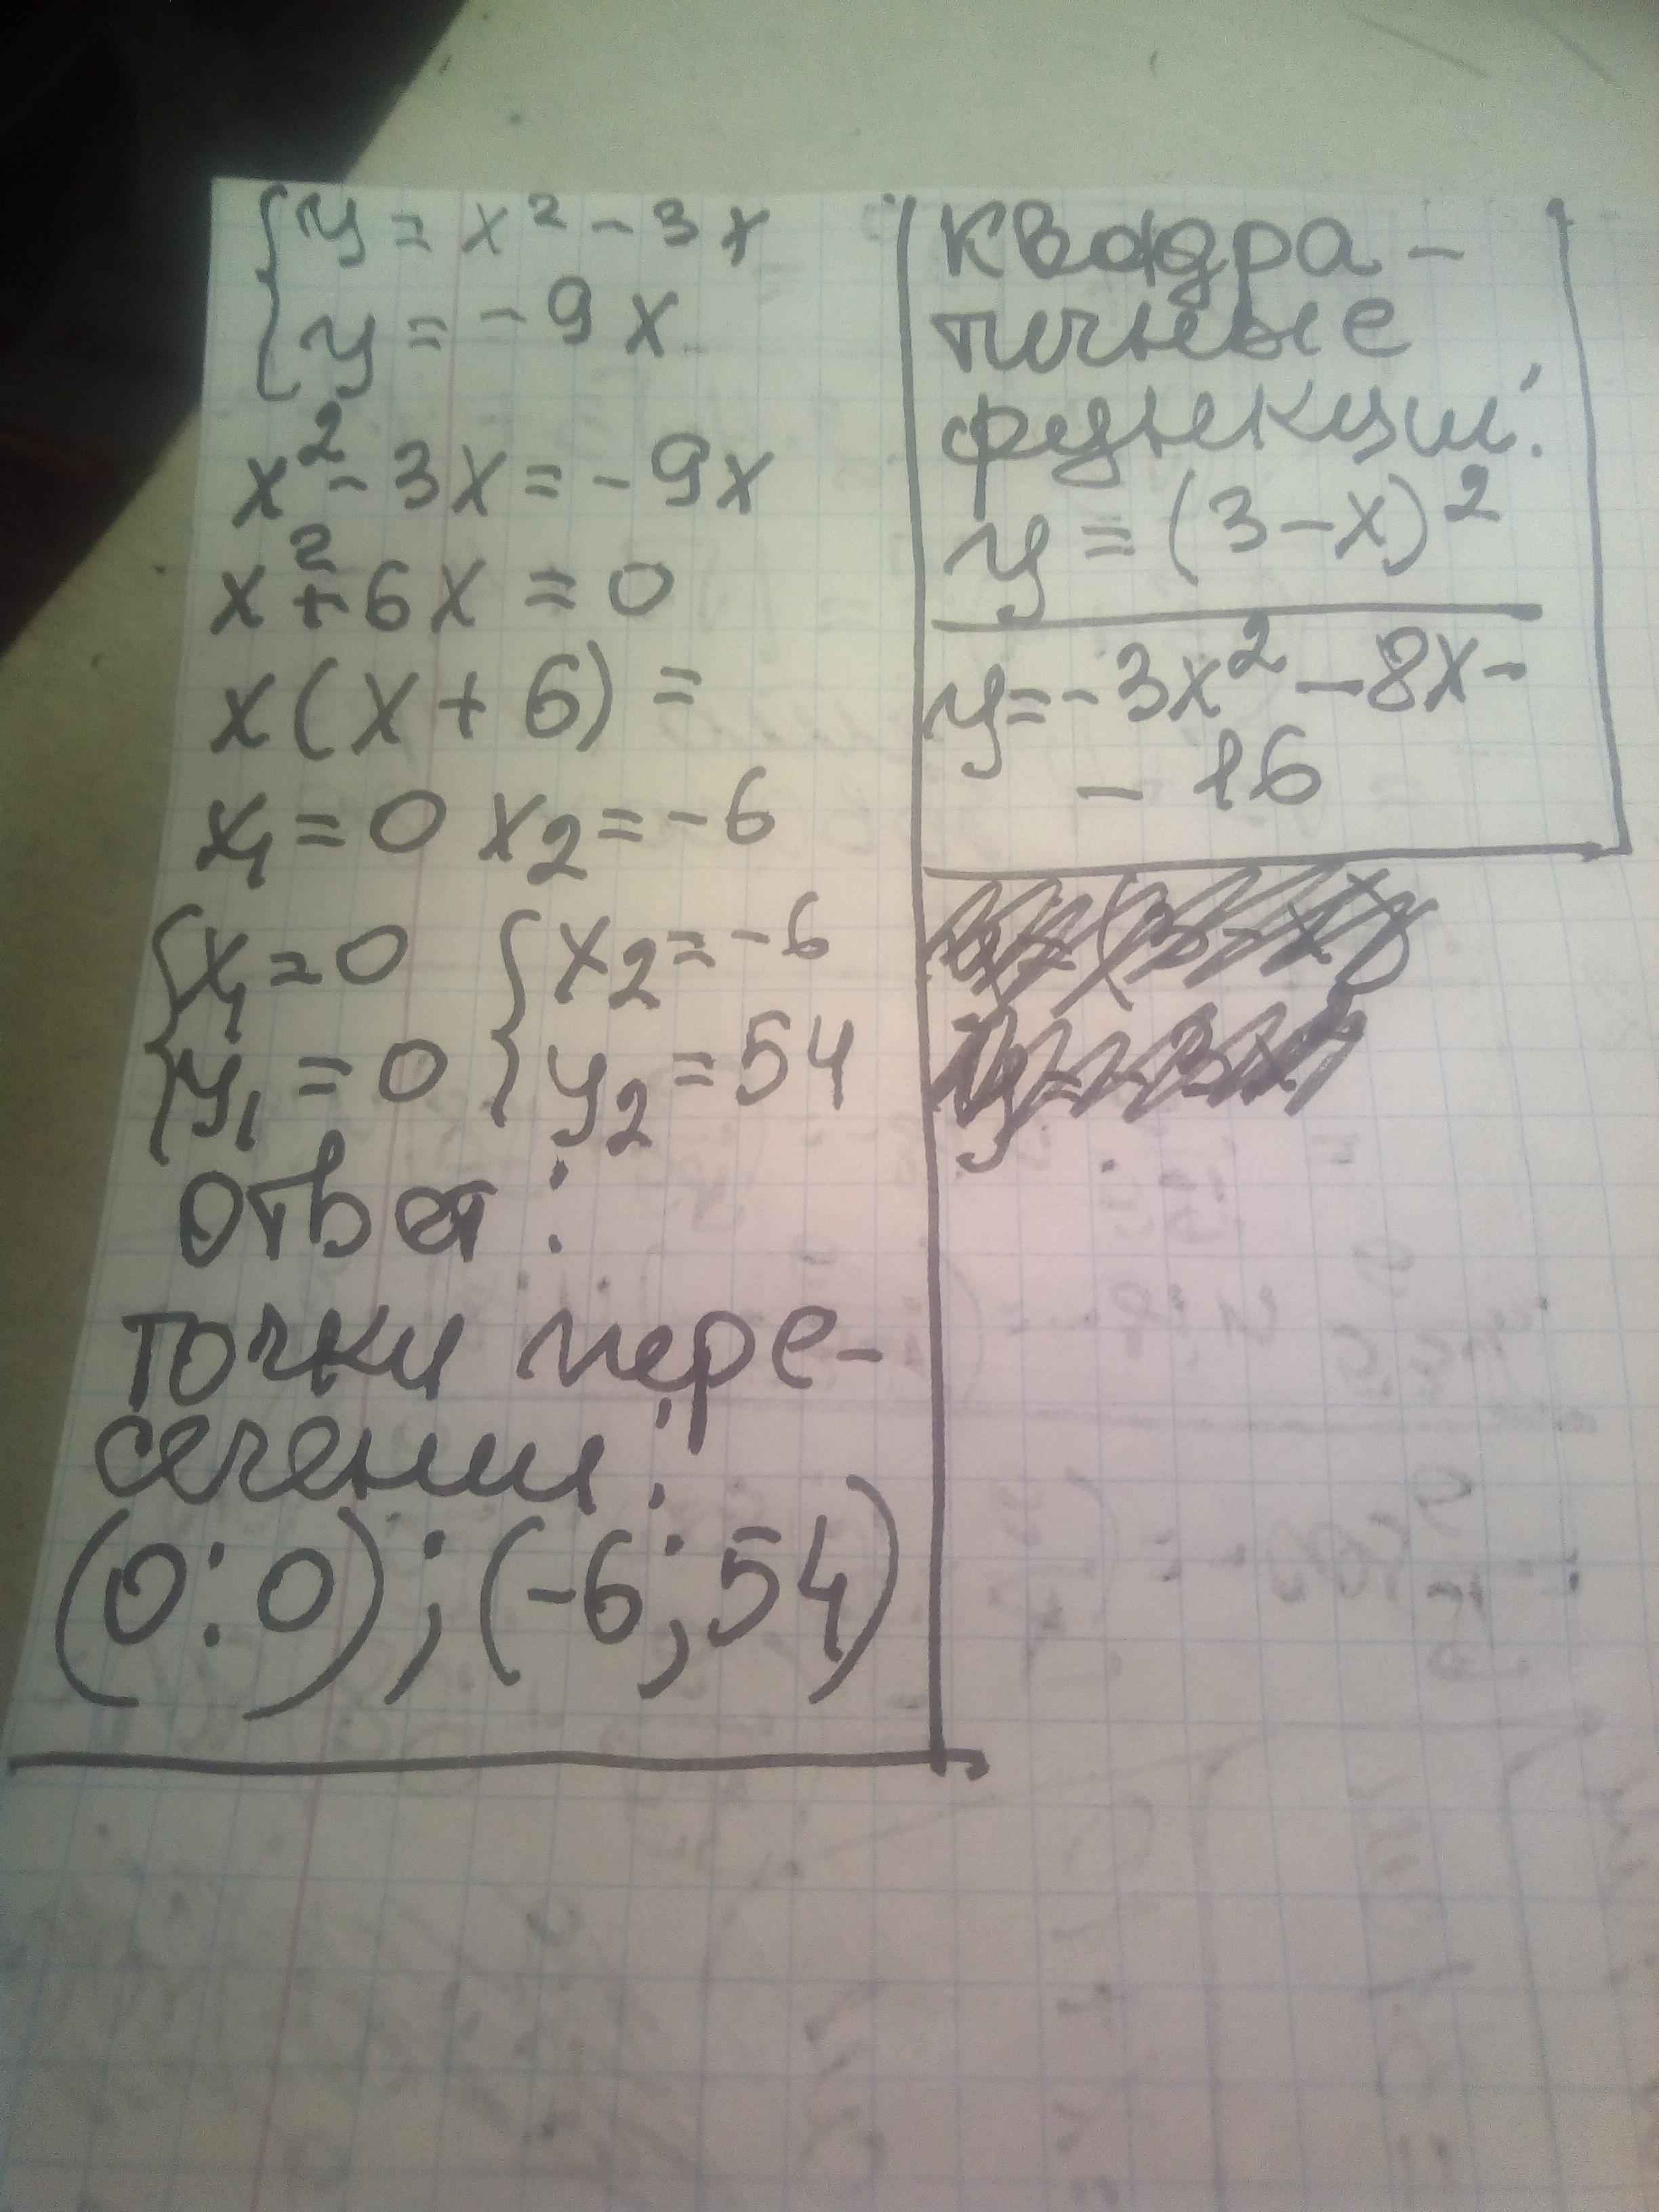 y = x² - 3x
y = -9x
x² - 3x = -9x
x² + 6x = 0
x(x + 6) =
x₁ = 0 x₂ = -6
x₁ = 0 x₂ = -6
y₁ = 0 y₂ = 54
ответ:
точки пере-
сечении:
(0:0); (-6; 54)
квадра-
тичные
функции:
y = (3-x)²
y = -3x² - 8x -
- 16